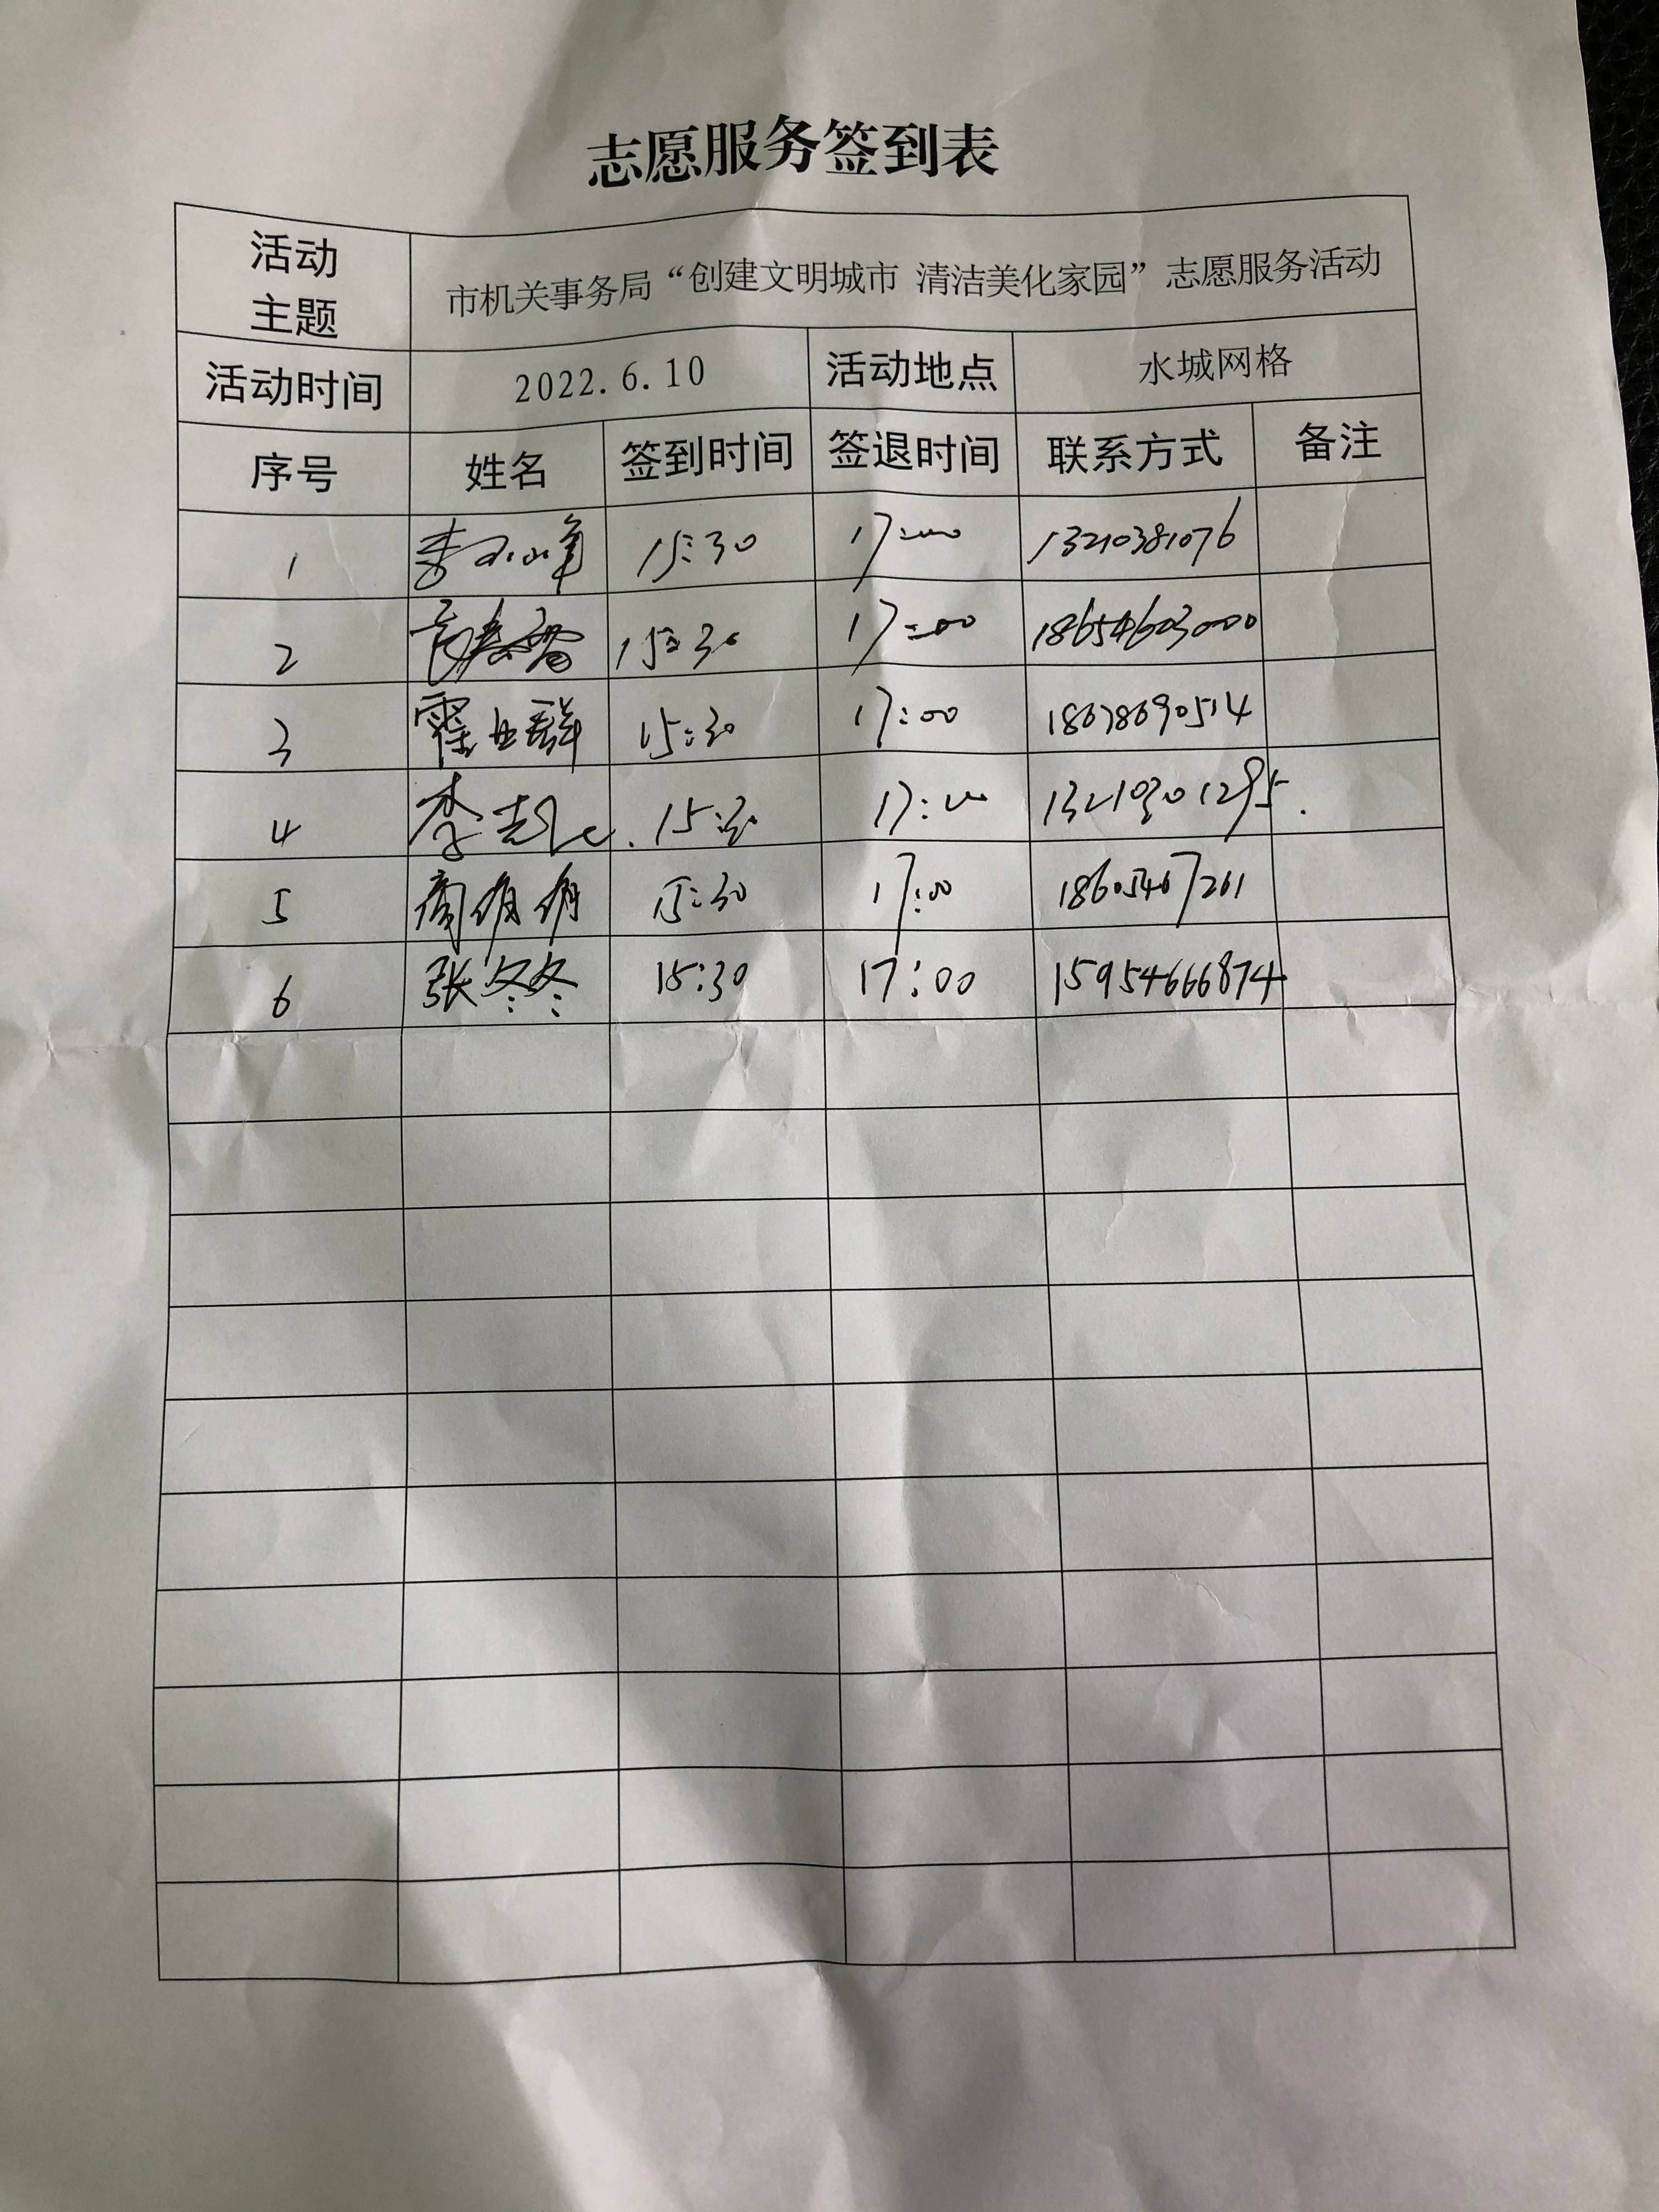 志愿服务签到表
活动主题 市机关事务局“创建文明城市 清洁美化家园”志愿服务活动
活动时间 2022.6.10 活动地点 水城网格
序号 姓名 签到时间 签退时间 联系方式 备注
1 李小峰 15:30 17:00 13210381076
2 15:30 17:00 18654603000
3 15:30 17:00 18678690514
4 李 15:30 17:00
5 15:30 17:00 18605467261
6 张冬冬 15:30 17:00 15954666874